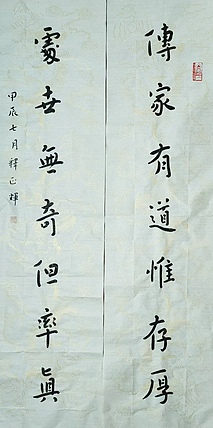 傳家有道惟存厚
處世無奇但率真
甲辰七月釋正輝